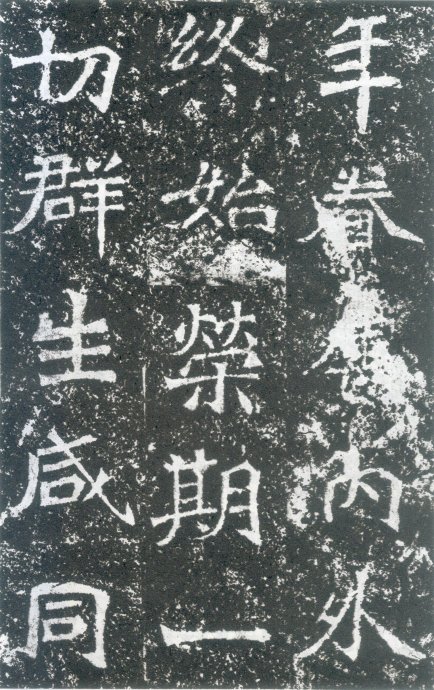 年眷内外
終始榮期一
切群生咸同